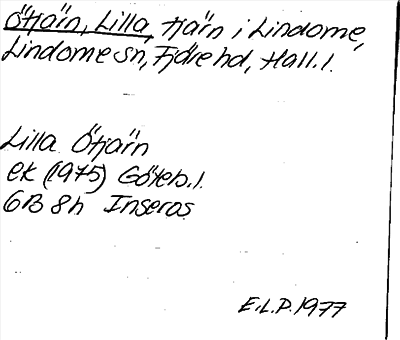 Ötjärn, Lilla, tjärn i Lindome,
Lindome sn, Fjäre hd, Hall.l.
Lilla Ötjärn
ek (1975) Göteb.l.
6B 8h Inseros
E.L.P. 1977